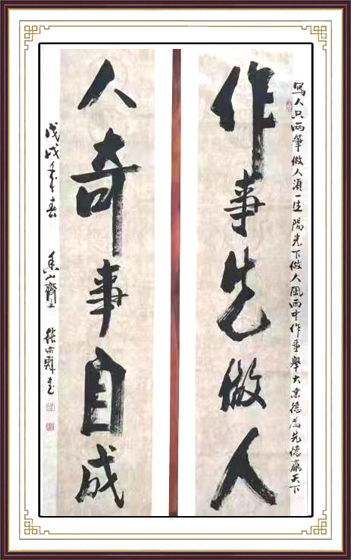 写人只两笔做人须一生阳光下做人风雨中作事举大业德为先德赢天下
作事先做人
人奇事自成
戊戌年春